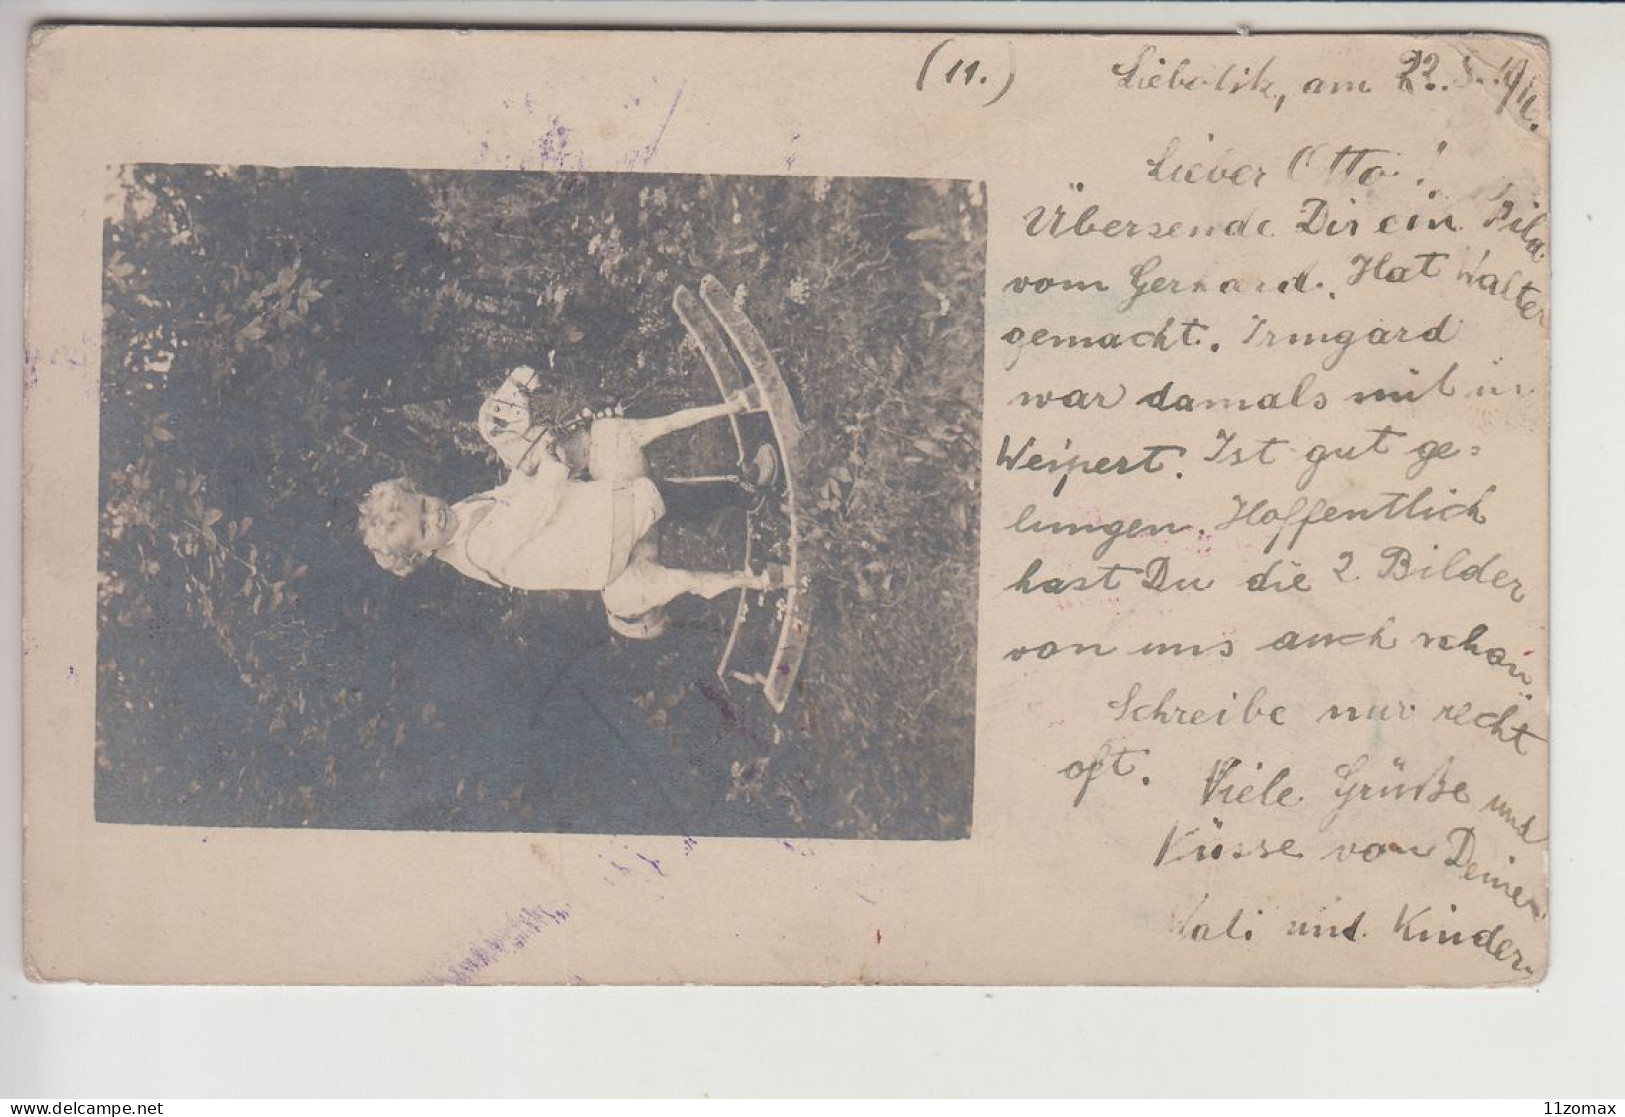 (11.) Liebotik, am 22.
Lieber Otto!
Übersende Dir ein Bild
vom Gerhard. Hat Walter
gemacht. Irmgard
war damals mit in
Weipert. Ist gut ge=
lungen. Hoffentlich
hast Du die 2 Bilder
von uns auch schon.
Schreibe nur recht
oft. Viele Grüße und
Küsse von Deiner
und Kinder.
www.delcampe.net
11zomax